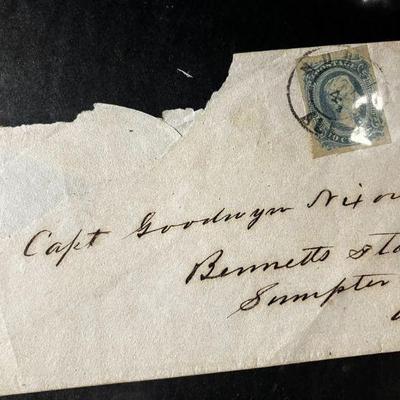 POSTAGE
Capt Goodwyn Nixon
Bennetts Sta
Sumpter